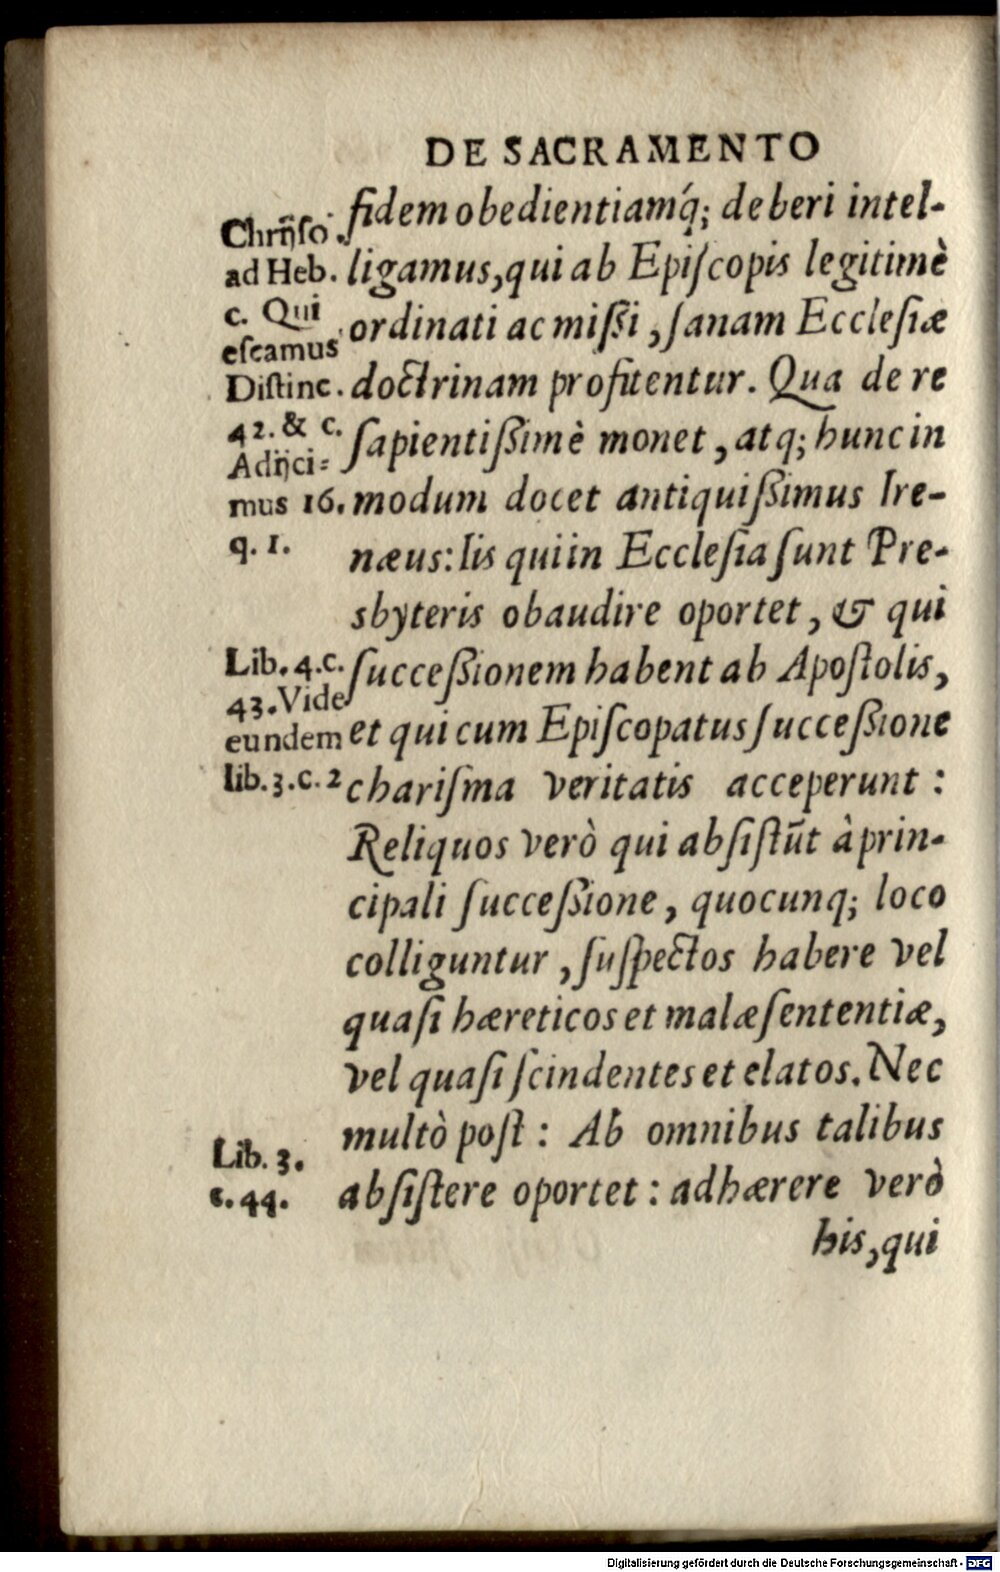 DE SACRAMENTO
Chrӱſo.
ad Heb.
c. Qui
eſcamus
Diſtinc.
42. & c.
Adijci-
mus 16.
q. 1.
fidem obedientiamq́; deberi intel-
ligamus, qui ab Epiſcopis legitimè
ordinati ac miſſi, ſanam Eccleſiæ
doctrinam profitentur. Qua de re
ſapientiſſimè monet, atq; hunc in
modum docet antiquiſſimus Ire-
næus: Iis qui in Eccleſia ſunt Pre-
sbyteris obaudire oportet, & qui
Lib. 4. c.
43. Vide
eundem
lib. 3. c. 2
ſucceſſionem habent ab Apoſtolis,
et qui cum Epiſcopatus ſucceſſione
chariſma veritatis acceperunt:
Reliquos verò qui abſiſtūt à prin-
cipali ſucceſſione, quocunq; loco
colliguntur, ſuſpectos habere vel
quaſi hæreticos et malæ ſententiæ,
vel quaſi ſcindentes et elatos. Nec
multò poſt: Ab omnibus talibus
Lib. 3.
c. 44.
abſiſtere oportet: adhærere verò
his, qui
Digitalisierung gefördert durch die Deutsche Forschungsgemeinschaft - DFG